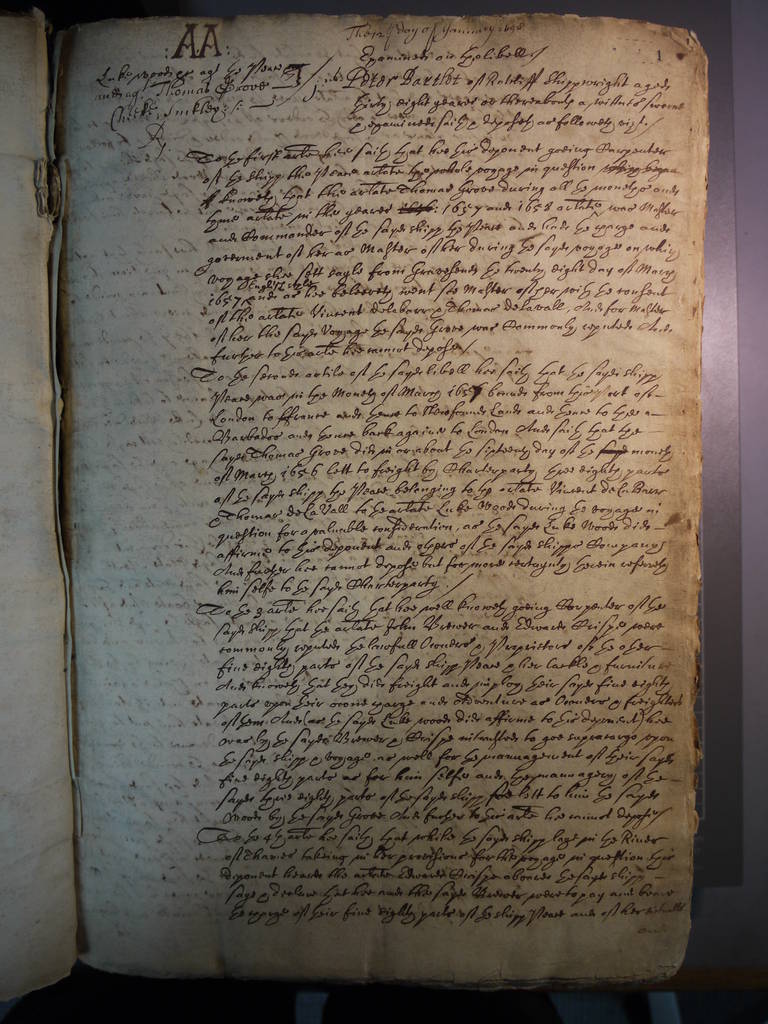 :AA:
The 12th day of January 1658
1
Examined on the libell
Luke woods ags the Peace
and ag. Thomas Grove
Cheeke, Suckley:
Rp. j.
Peter Bartlet of Ratcliff Shippwright aged
thirty eight yeares or thereabouts a wittnes sworne
& examined saith & deposeth as followeth vizt.
To the first arlte hee saith that hee this deponent goeing Carpenter
of the shipp the Peace arlate the whole voyage in question
knoweth that the arlate Thomas Grove during all the moneths and
tyme arlate in the yeares 1657 and 1658 arlate was Master
and Commander of the sayd shipp the Peace and had the charge and
goverment of her as Master of her during the sayd voyage on which
voyage shee sett sayle from Gravesend the twenty eight day of March
English style
1657 and as hee beleeveth went soe Master of her with the consent
of the arlate Vincent delabarr & Thomas delavall, And for Master
of her the sayd voyage the sayd Grove was Commonly reputed And
further to this arlte hee cannot depose/
To the second article of the sayd libell hee saith that the sayd shipp
Peace was in the Moneth of March 1657 bound from this Port of
London to ffrance and thence to Newfound Land and thence to the
Barbados and thence back againe to London And saith that the
sayd Thomas Grove did in or about the sixteenth day of the moneth
of March 1656 lett to freight by Charterparty three eighty parts
of the sayd shipp the Peace belonging to the arlate Vincent de la Barr
& Thomas de La Vall to the arlate Luke Woods during the voyage in
question for a valuable consideration, as the sayd Luke Woods did
affirme to this deponent and others of the sayd shipps Company
And further hee cannot depose but for more certaynty herein referreth
him selfe to the sayd Charterparty./
To the 3 arlte hee saith that hee well knoweth goeing Carpenter of the
sayd shipp that the arlate John Brewer and Edward Crispe were
commonly reputed the lawfull Owners & Proprietors of the other
five eighty parts of the sayd shipp Peace & her tackle & furniture
And knoweth that they did freight and imploy their sayd five eighty
parts upon their owne charge and Adventure as Owners & freighters
of them And (as the sayd Luke woods did affirme to this deponent) hee
was by the sayd Brewer & Crispe intrusted to goe supracargo upon
the sayd shipp & voyage as well for the mannagement of their sayd
five eighty parts as for him selfe and the mannagery of the
sayd three eighty parts of the sayd shipp lett to him the sayd
Woods by the sayd Grove And further to this arlte hee cannot depose/
To the 4th arlte hee saith that while the sayd shipp lay in the River
of Thames takeing in her provisions for the voyage in question this
deponent heard the arlate Edward Crispe aboard the sayd shipp
saye & declare that hee and the sayd Brewer were to pay and beare
the charge of their five eighty parts of the shipp Peace and of her
and